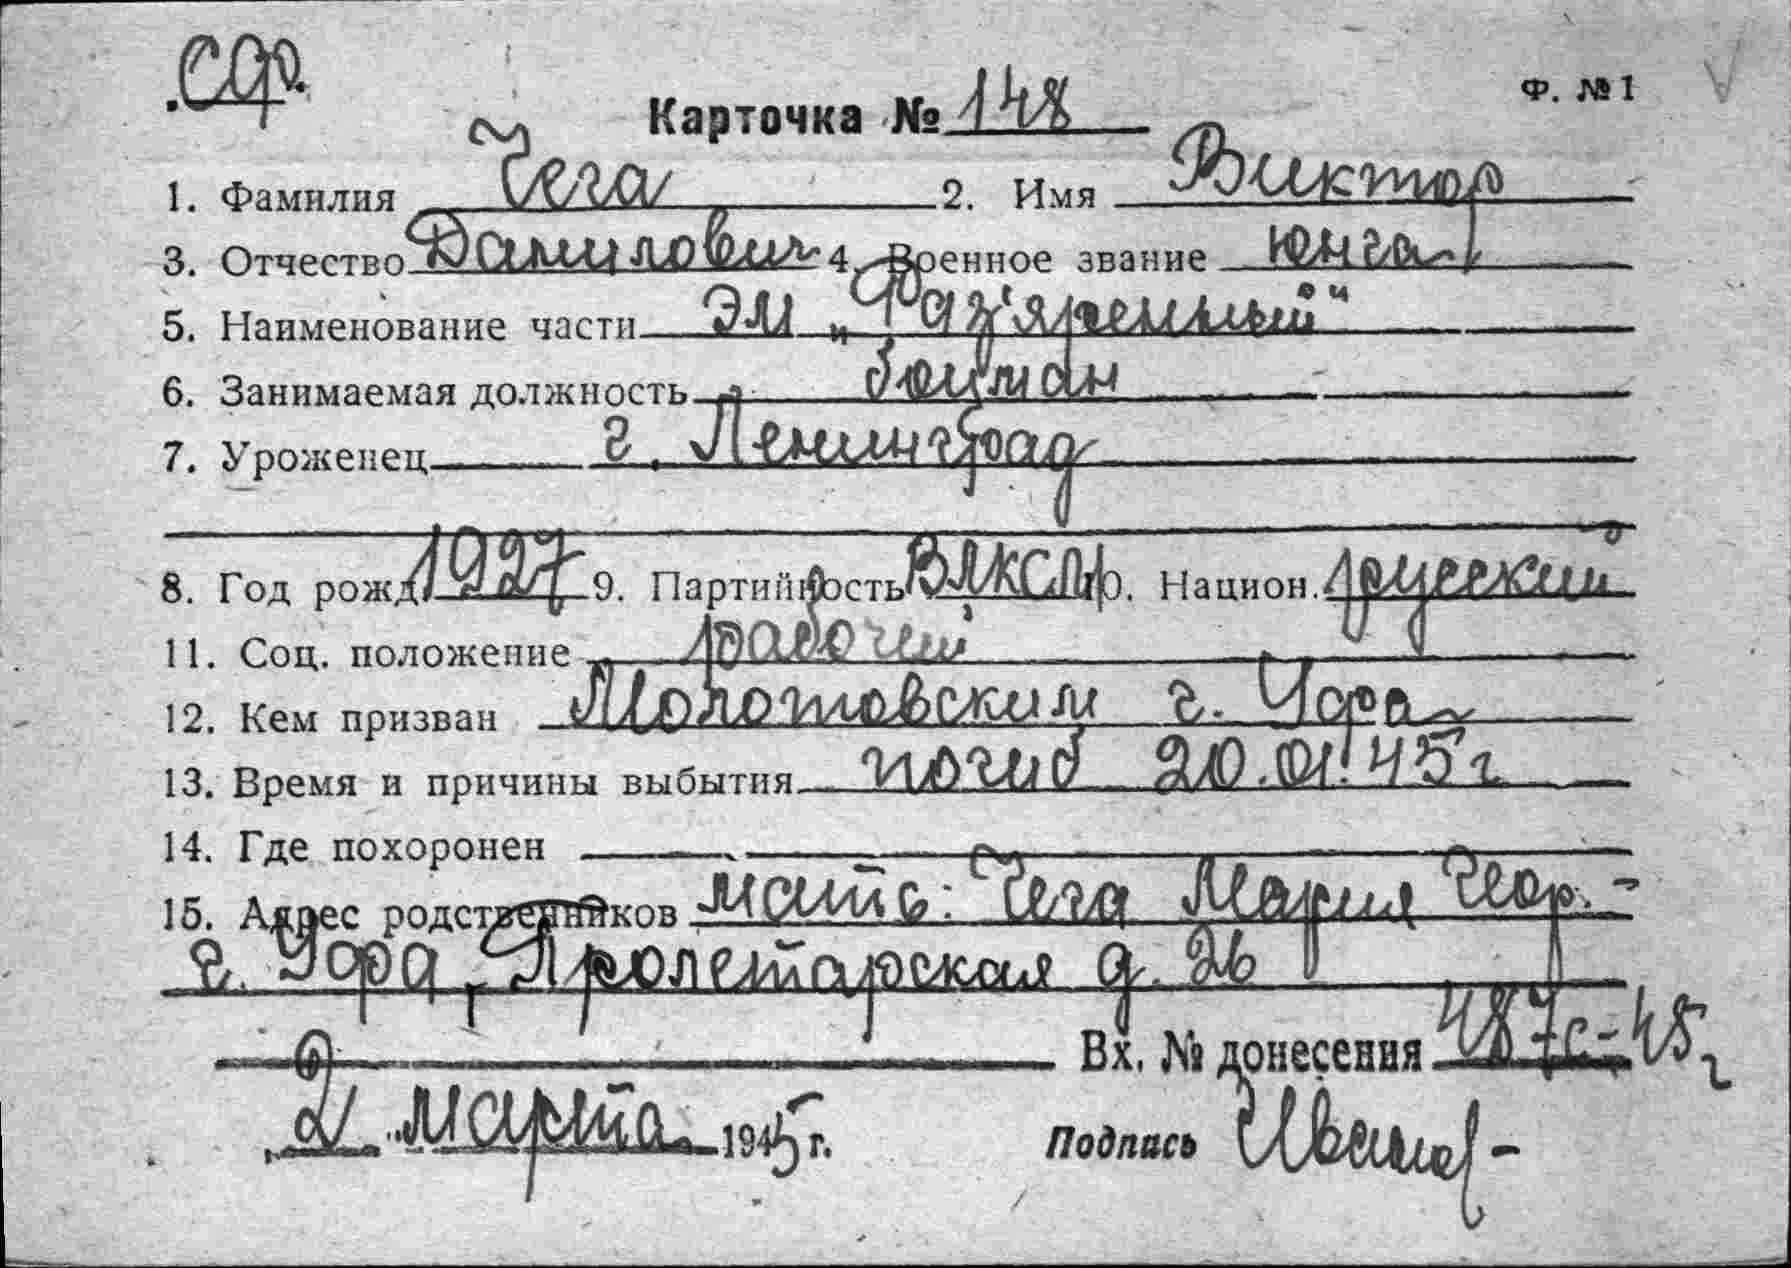 СФ.
Карточка № 148 Ф. № 1
1. Фамилия Чега 2. Имя Виктор
3. Отчество Данилович 4. Военное звание юнга
5. Наименование части ЭМ „Раз'яренный“
6. Занимаемая должность боцман
7. Уроженец г. Ленинград
8. Год рожд. 1927 9. Партийность ВЛКСМ 10. Национ. русский
11. Соц. положение рабочий
12. Кем призван Молотовским г. Уфа
13. Время и причины выбытия погиб 20.01.45 г
14. Где похоронен
15. Адрес родственников мать: Чега Мария Геор.-
г. Уфа, Пролетарская д. 26
Вх. № донесения 487с-45 г
„2“ марта 1945 г. Подпись Иванов